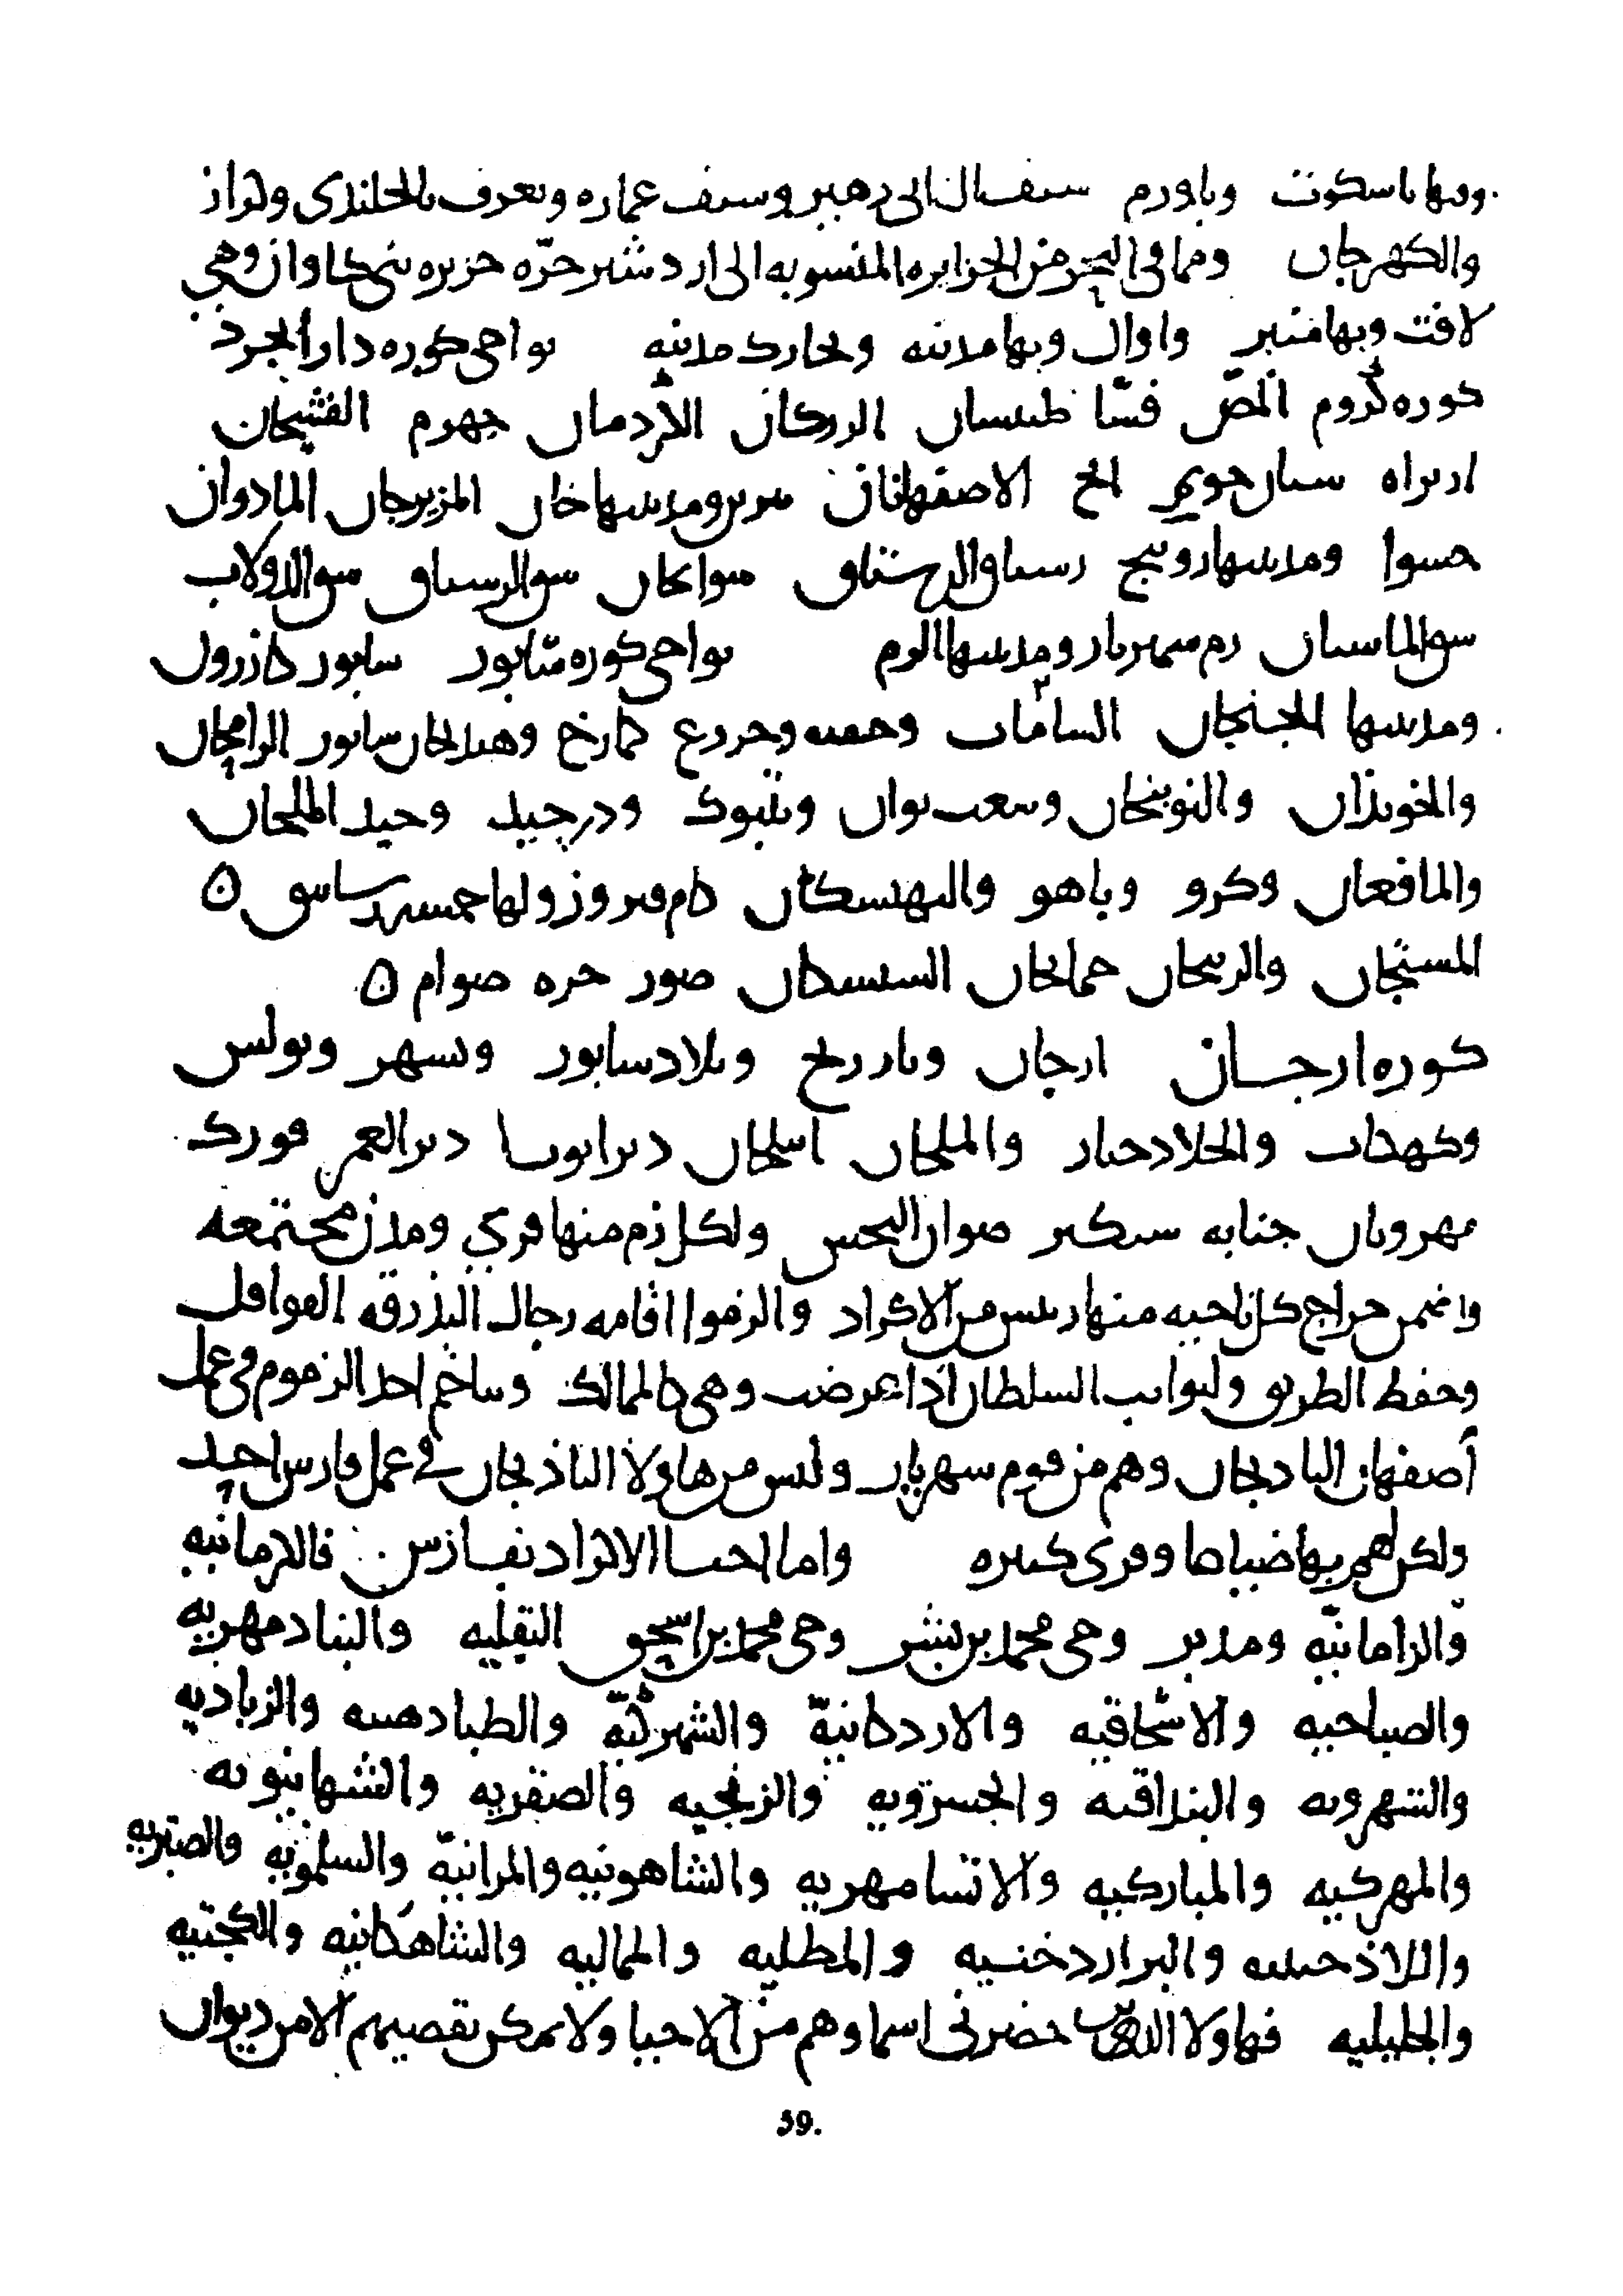 وبها باسكوت وباورم سيف ال ابي زهير وسيف عماره ويعرف بالجلندى وكران
والكهرجان ومما في البحر من الجزاير المنسوبه الى اردشير خرّه جزيره بنى كاوان وهي
لافت وبها منبر واوال وبها مدينه وخارك مدينه نواحي كوره دارابجرد
كوره كروم المص فسّا طمستان الكردبان الازدمان جهرم الفستجان
ادبراه سنان جويم الاصفهانان برير ومدينتها خان المزيرجان المادوان
خسوا ومدينتها روبنج رستاق الرستاق سوانجان سوق الرستاق سوق الدولاب
سوق الماسان رم شهريار ومدينتها الروم نواحي كوره سابور سابور كازرون
ومدينتها الجنجان السامات كمارخ وهنديجان سابور الرامجان
والخوبذان والنوبنجان وشعب بوان وتنبوك ودرخيد وحيد الملجان
والمافعان وكرو وباهو والبهنسكان كام فيروز ولها خمسه رساتيق ه
المستجان والربنجان جمايجان السنسكان صور خره صوام ه
كوره ارجان ارجان وبازرنج وبلاد سابور وبسهر
وكهكاب والجلادجان والملجان اسلجان دير ايوب دير العمر فورك
مهروبان جنابه سينيز صوان النجس ولكل زم منها قرى ومدن مجتمعه
واضمن خراج كل ناحيه منها رييس من الاكراد والزموا اقامه رجال البذرقه القوافل
وحفظ الطريق ولنوايب السلطان اذا عرضت وهي كالممالك وتتاخم احد الزموم في عمل
اصفهان البادنجان وهم من قوم شهريار وليس من هاولا الباذنجان في عمل فارس احد
ولكن لهم بها ضياعا وقرى كثيره واما احيا الاكراد بفارس فالكرمانيه
والرامانيّه ومدير وحي محمد بن بشر وحي محمد بن اسحق البقليه والبنادمهريه
والصباحيه والاسحاقيه والاردكانيّه والشهركيّه والطبادهنيه والزباديه
والشهرويه والبنداقيه والخسرويه والزنجيه والصفريه والشهابنويه
والمهركيه والمباركيه والاشتامهريه والشاهونيه والمرانيّه والسلمونيه والصبريه
والازدخنيه والبرازدخنيه والمطلبيه والماليه والشاهكانيه والكجتيه
والجليليه فهاولا الذين حضرني اسماوهم من الاحيا ولا يمكن تقصيهم الا من ديوان
59.